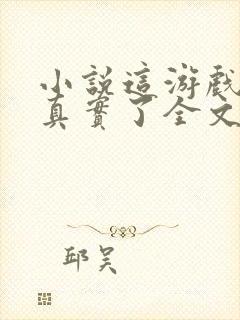 小説這游戲
真實了全文
邱吴